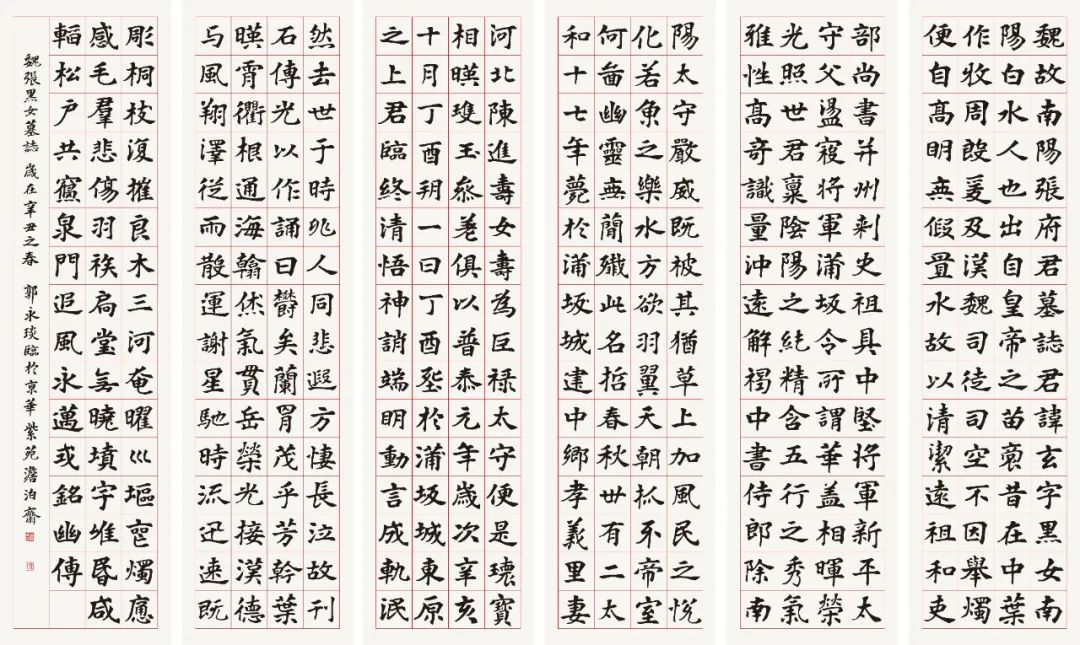 魏故南陽張府君墓誌君諱玄字黑女南
陽白水人也出自皇帝之苗裔昔在中葉
作牧周殷爰及漢魏司徒司空不因舉燭
便自高明無假置水故以清潔遠祖和吏
部尚書并州刺史祖具中堅將軍新平太
守父盪寇將軍蒲坂令所謂華蓋相暉榮
光照世君稟陰陽之純精含五行之秀氣
雅性高奇識量沖遠解褐中書侍郎除南
陽太守嚴威既被其猶草上加風民之悅
化若魚之樂水方欲羽翼天朝抓牙帝室
何啚幽靈無簡殲此名哲春秋卅有二太
和十七年薨於蒲坂城建中鄉孝義里妻
河北陳進壽女壽為巨祿太守便是瓌寶
相暎瓊玉參差俱以普泰元年歲次辛亥
十月丁酉朔一日丁酉塟於蒲坂城東原
之上君臨終清悟神誚端明動言成軌泯
然去世于時兆人同悲遐方悽長泣故刊
石傳光以作誦曰欝矣蘭胃茂乎芳幹葉
暎霄衢根通海翰烋氣貫岳榮光接漢德
与風翔澤從雨散運謝星馳時流迅速既
彫桐枝復摧良木三河奄曜巛堀霾燭應
感毛羣悲傷羽族扃堂無曉墳宇唯昏咸
韜松戶共寢泉門追風永邁式銘幽傳
魏張黑女墓誌 歲在辛丑之春 郭永琰臨於京華紫苑澹泊齋